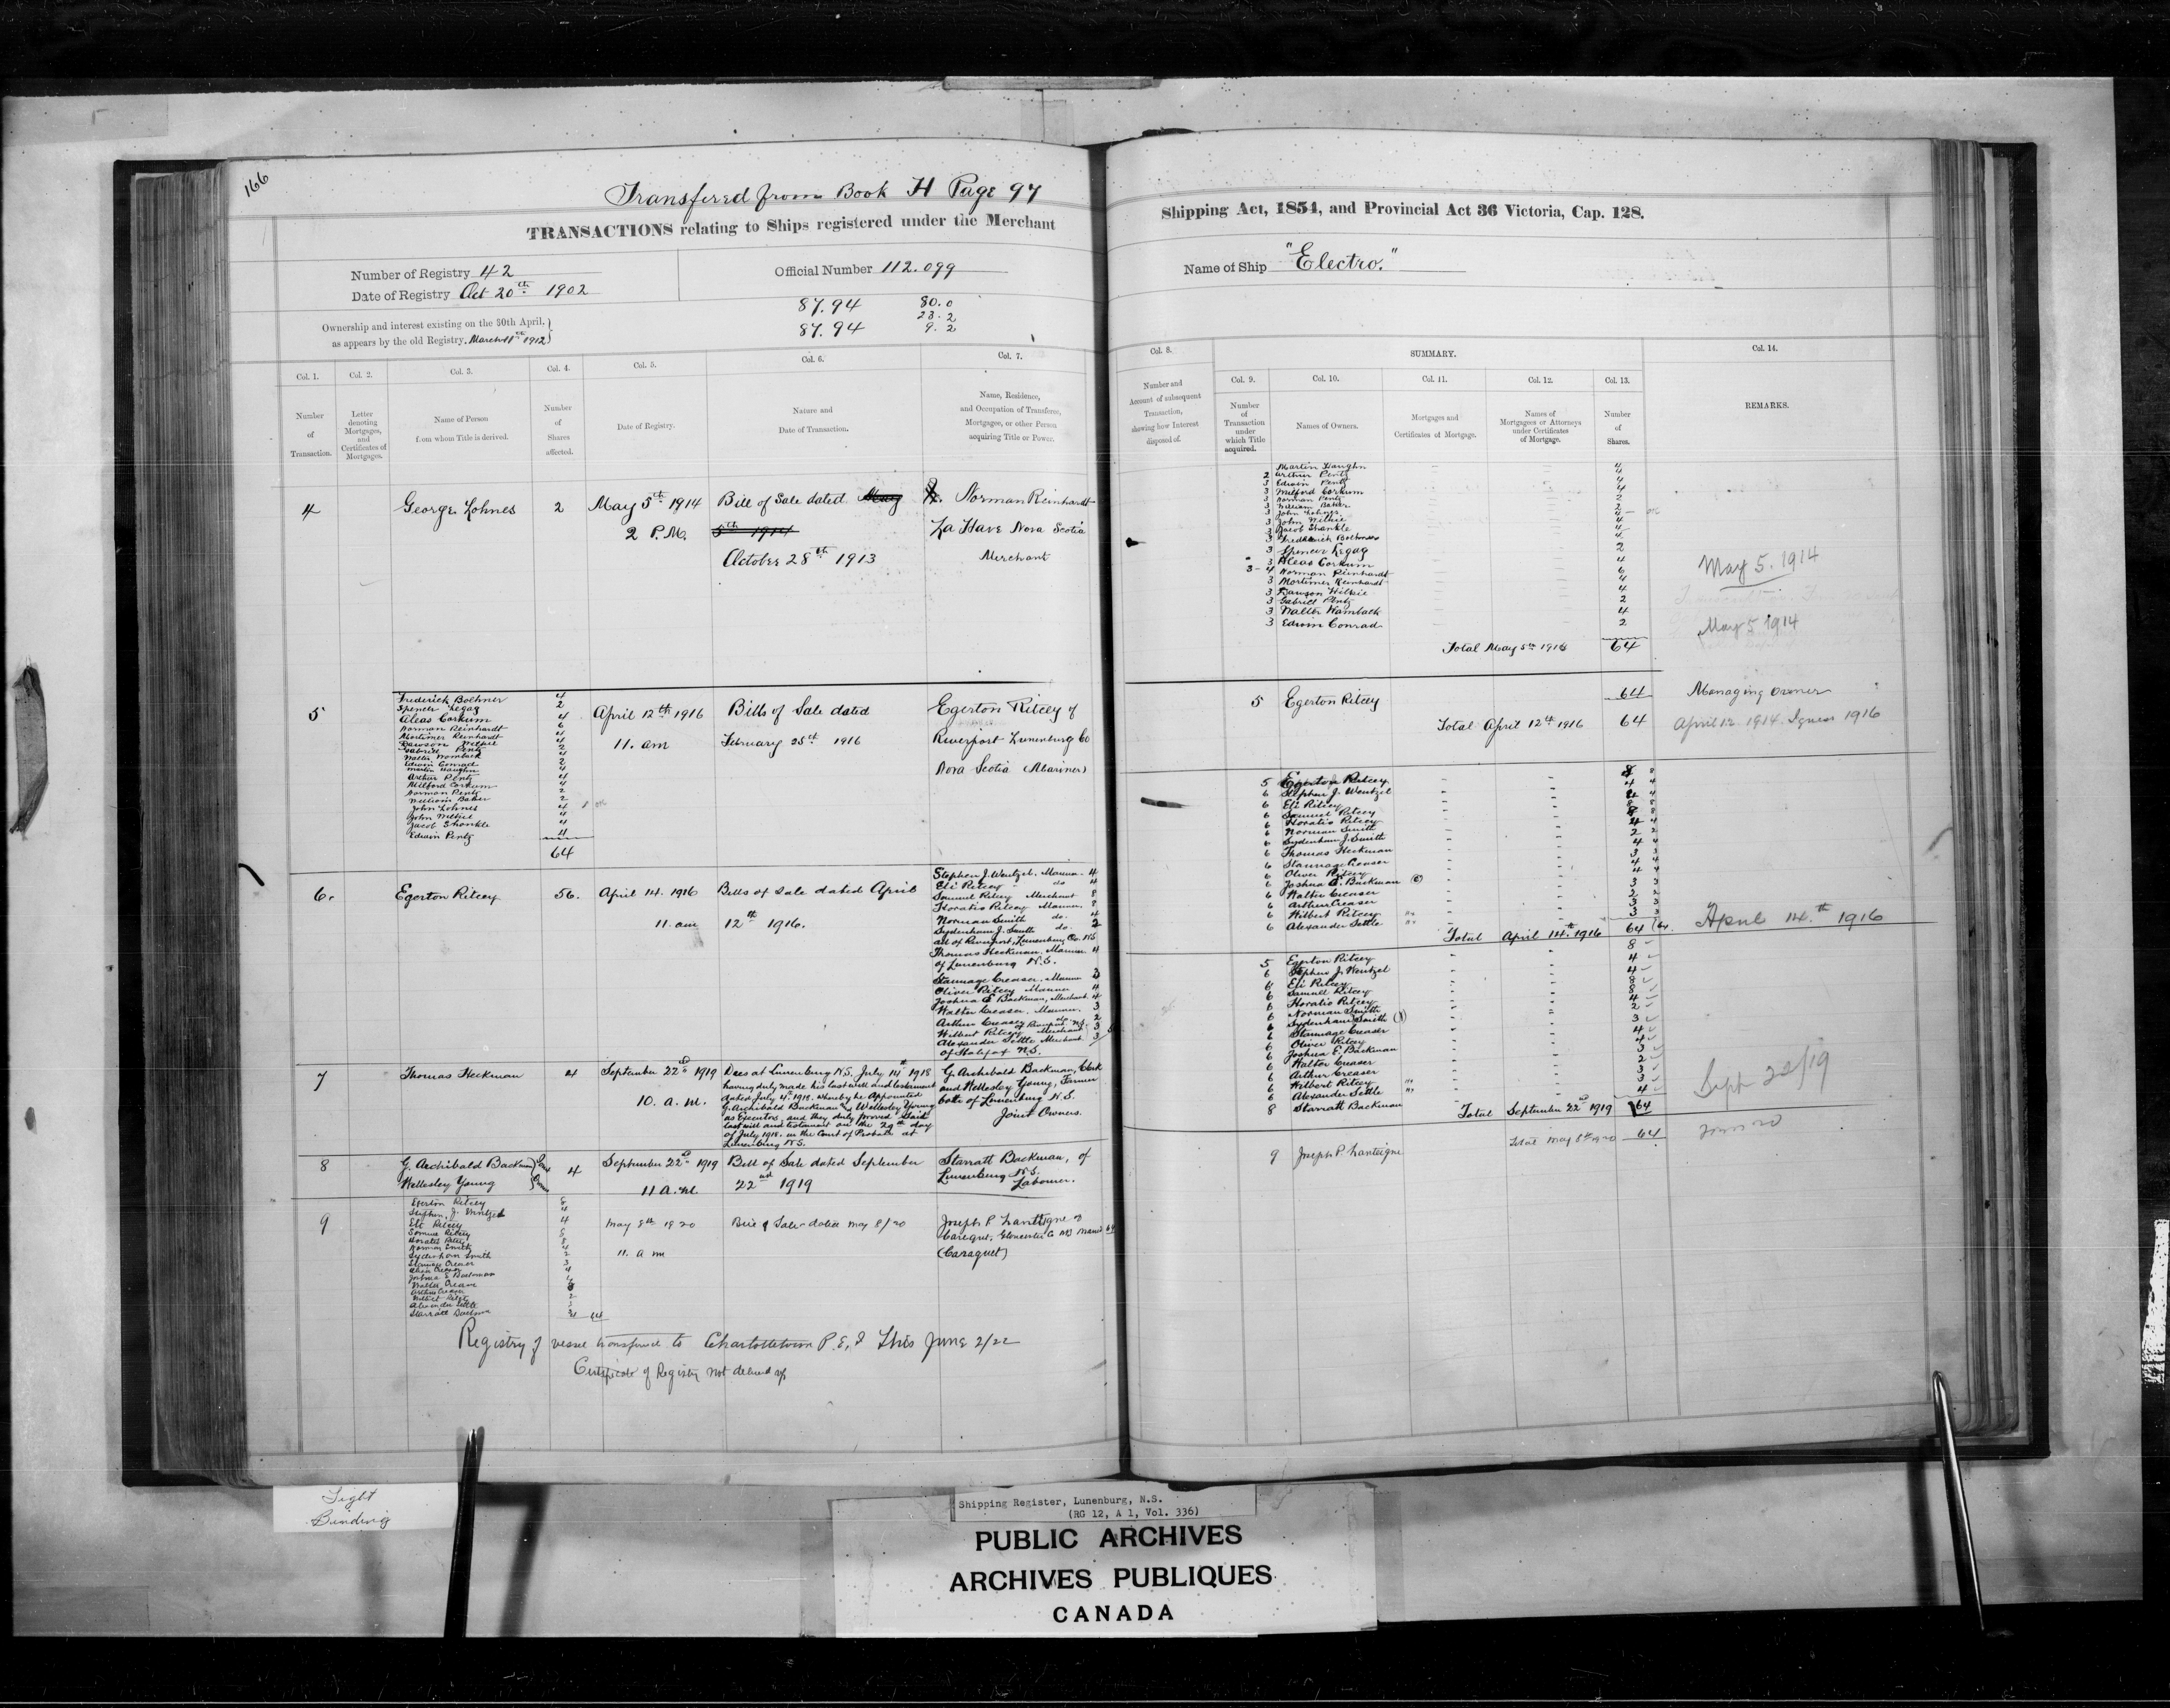 166
Transfered from Book H Page 97
TRANSACTIONS relating to Ships registered under the Merchant
Number of Registry 42
Date of Registry Oct 20th 1902
Official Number 112.099
87.94 80.0
23.2
87.94 9.2
Ownership and interest existing on the 30th April,
as appears by the old Registry. March 11th 1912
Col. 1. Col. 2. Col. 3. Col. 4. Col. 5. Col. 6. Col. 7.
Number of Transaction.
Letter denoting Mortgages, and Certificates of Mortgages.
Name of Person from whom Title is derived.
Number of Shares affected.
Date of Registry.
Nature and Date of Transaction.
Name, Residence, and Occupation of Transferee, Mortgagee, or other Person acquiring Title or Power.
4 George Lohnes 2 May 5th 1914 Bill of Sale dated May Norman Reinhardt
2 P.M. 5th 1914 La Have Nova Scotia
October 28th 1913 Merchant
5 April 12th 1916 Bills of Sale dated Egerton Ritcey of
11. am February 25th 1916 Riverport Lunenburg Co
Nova Scotia (Mariner)
Frederick Boehner 4
Spencer Legag 2
Aleas Corkum 4
Norman Reinhardt 6
Mortimer Reinhardt 4
Dawson Wilkie 4
Gabriel Pentz 2
Walter Wamback 4
Edwin Conrad 2
Martin Haughn 4
Arthur Pentz 4
Milford Corkum 4
Norman Pentz 2
William Baker 2
John Lohnes 4
John Wilkie 4
Jacob Shankle 4
Edwin Pentz 4
64
6. Egerton Ritcey 56. April 14. 1916 Bills of Sale dated April
11 am 12th 1916.
Stephen J. Wentzel. Mariner. 4
Eli Ritcey do 4
Samuel Ritcey Merchant 8
Horatio Ritcey Mariner. 8
Norman Smith do. 4
Sydenham J. Smith do. 2
all of Riverport, Lunenburg Co. N.S.
Thomas Heckman. Mariner. 4
of Lunenburg N.S.
Stannage Creaser. Mariner 3
Oliver Ritcey Mariner 4
Joshua E Backman, Merchant. 4
Walter Creaser. Mariner. 3
Arthur Creaser do. 2
of Riverport N.S.
Wilbert Ritcey Merchant 3
Alexander Settle Merchant 3
of Halifax N.S.
7 Thomas Heckman 4 September 22nd 1919
10. a.m.
Dies at Lunenburg N.S. July 14th 1918
having duly made his last will and testament
dated July 4. 1918. whereby he Appointed
G. Archibald Backman and Wellesley Young
as Executors, and they duly proved Said
last will and testament on the 29th day
of July 1918. in the Court of Probate at
Lunenburg N.S.
G. Archibald Backman, Clerk
and Wellesley Young, Farmer
both of Lunenburg N.S.
Joint Owners.
8 G. Archibald Backman Joint 4 September 22nd 1919 Bill of Sale dated September Starratt Backman, of
Wellesley Young Owners 11 a.m. 22nd 1919 Lunenburg N.S.
Labourer.
9 May 8th 1920 Bill of Sale dated May 8/20 Joseph P. Lanteigne of
11. a m Caraquet, Gloucester Co NB Mariner 64
(Caraquet)
Egerton Ritcey 8
Stephen J. Wentzel 4
Eli Ritcey 4
Samuel Ritcey 8
Horatio Ritcey 8
Norman Smith 4
Sydenham Smith 2
Joshua E Backman
Walter Creaser
Arthur Creaser
Wilbert Ritcey
Alexander Settle
Starratt Backman 4 64
Registry of vessel transferred to Charlottetown P.E.I This June 2/22
Certificate of Registry not delivered up
Shipping Act, 1854, and Provincial Act 36 Victoria, Cap. 128.
Name of Ship "Electro."
Col. 8. SUMMARY. Col. 14.
Col. 9. Col. 10. Col. 11. Col. 12. Col. 13.
Number and Account of subsequent Transaction, showing how Interest disposed of.
Number of Transaction under which Title acquired.
Names of Owners.
Mortgages and Certificates of Mortgage.
Names of Mortgagees or Attorneys under Certificates of Mortgage.
Number of Shares.
REMARKS.
Martin Haughn 4
2 Arthur Pentz 4
3 Edwin Pentz 4
3 Milford Corkum 4
3 Norman Pentz 2
3 William Baker 2
3 John Lohnes 4
3 John Wilkie 4
3 Jacob Shankle 4
3 Frederick Boehner 4
3 Spencer Legag 2
3 Aleas Corkum 4
3-4 Norman Reinhardt 6
3 Mortimer Reinhardt 4
3 Dawson Wilkie 4
3 Gabriel Pentz 2
3 Walter Wamback 4
3 Edwin Conrad 2
Total May 5th 1914 64
May 5. 1914
May 5 1914
5 Egerton Ritcey 64 Managing owner
Total April 12th 1916 64 April 12 1914. I guess 1916
5 Egerton Ritcey 8
6 Stephen J. Wentzel 4
6 Eli Ritcey 4
6 Samuel Ritcey 8
6 Horatio Ritcey 8
6 Norman Smith 4
6 Sydenham J. Smith 2
6 Thomas Heckman 4
6 Stannage Creaser 3
6 Oliver Ritcey 4
6 Joshua E. Backman 4
6 Walter Creaser 3
6 Arthur Creaser 2
6 Wilbert Ritcey 3
6 Alexander Settle 3
Total April 14th 1916 64
April 14.th 1916
5 Egerton Ritcey 8
6 Stephen J. Wentzel 4
6 Eli Ritcey 4
6 Samuel Ritcey 8
6 Horatio Ritcey 8
6 Norman Smith 4
6 Sydenham Smith 2
6 Stannage Creaser 3
6 Oliver Ritcey 4
6 Joshua E. Backman 4
6 Walter Creaser 3
6 Arthur Creaser 2
6 Wilbert Ritcey 3
6 Alexander Settle 3
8 Starratt Backman 4
Total September 22nd 1919 64
Sept 22/19
Total May 8th 1920 64
9 Joseph P. Lanteigne
Tight
Binding
Shipping Register, Lunenburg, N.S.
(RG 12, A 1, Vol. 336)
PUBLIC ARCHIVES
ARCHIVES PUBLIQUES
CANADA